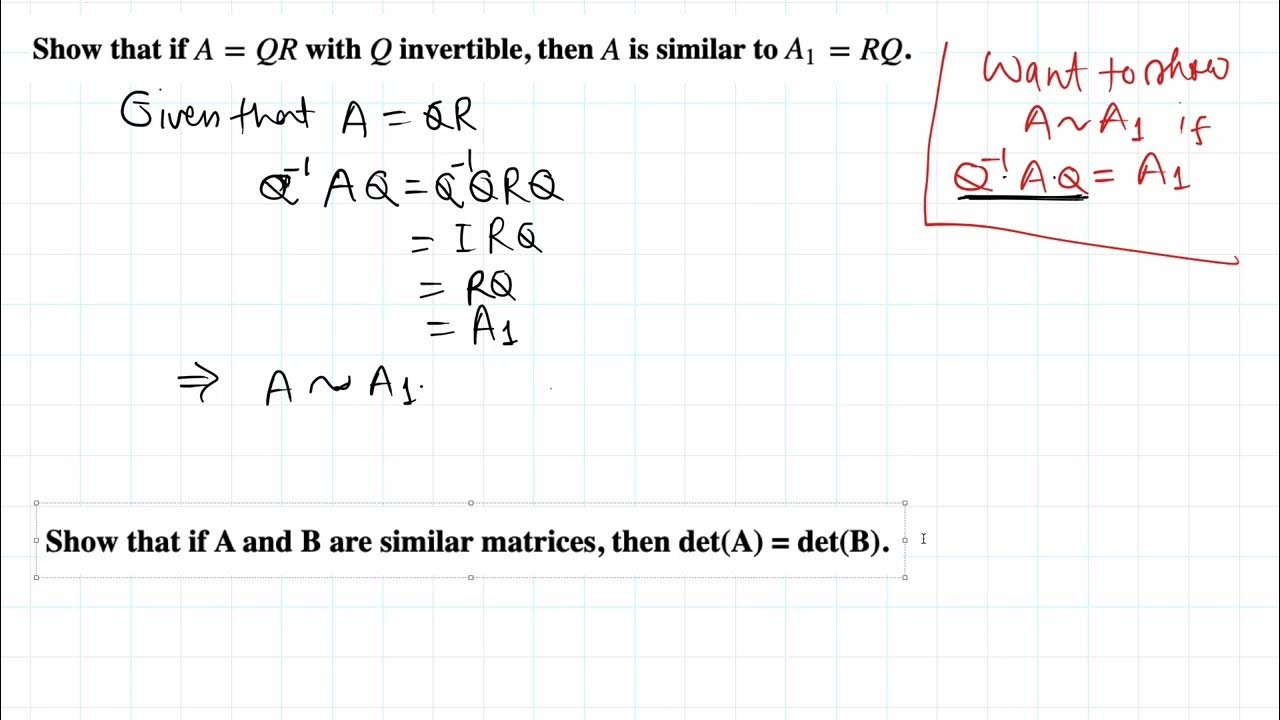 Show that if A = QR with Q invertible, then A is similar to A₁ = RQ.
Given that A = QR
Q⁻¹ A Q = Q⁻¹ Q R Q
= I R Q
= RQ
= A₁
⇒ A ~ A₁.
Want to show
A ~ A₁ if
Q⁻¹ · A · Q = A₁
Show that if A and B are similar matrices, then det(A) = det(B).